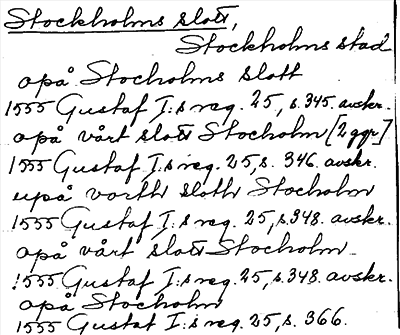 Stockholms slott,
Stockholms stad
opå Stocholms slott
1555 Gustaf I:s reg. 25, s. 345. avskr.
opå vårt slott Stocholm [2 ggr]
1555 Gustaf I:s reg. 25, s. 346. avskr.
upå vortt slott Stocholm
1555 Gustaf I:s reg. 25, s. 348. avskr.
opå vårt slott Stocholm
1555 Gustaf I:s reg. 25, s. 348. avskr.
opå Stocholm
1555 Gustaf I:s reg. 25, s. 366.